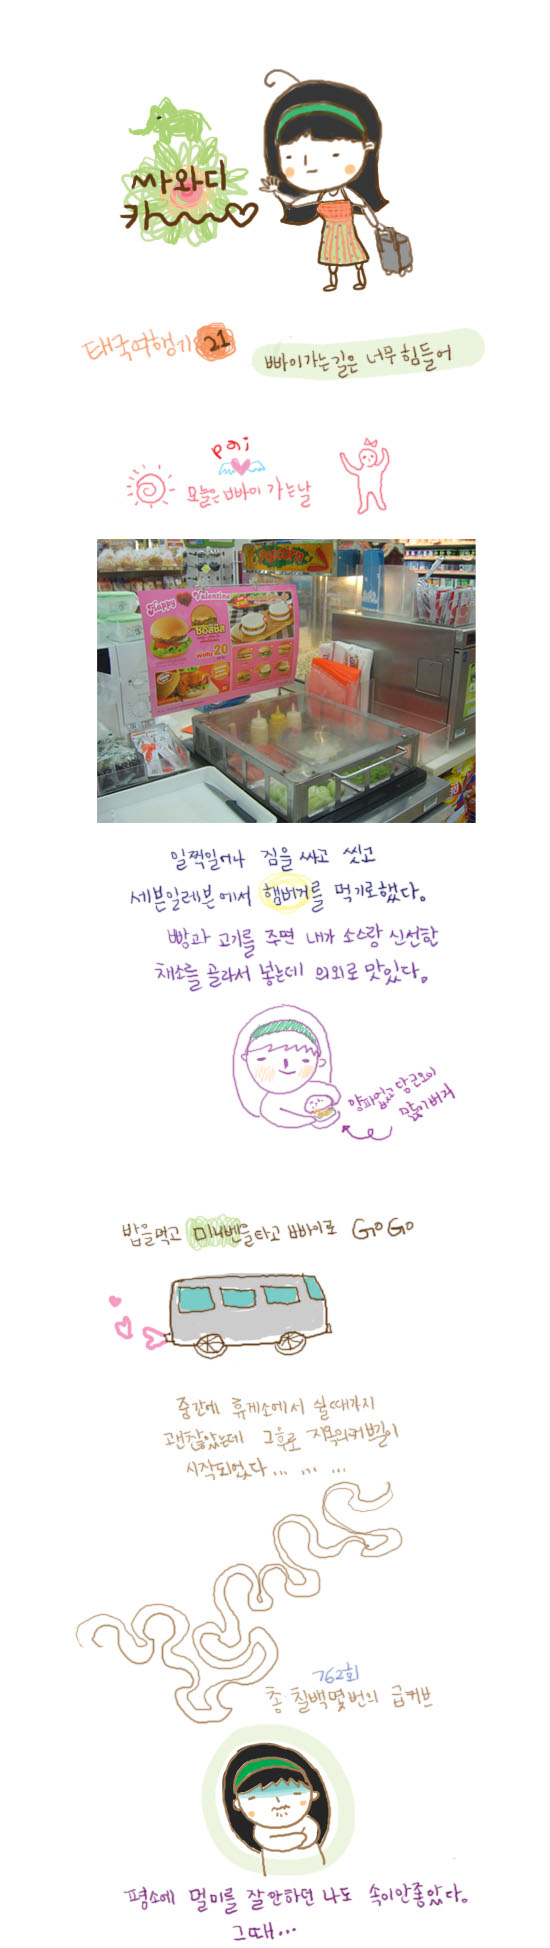 싸와디
카~~~♡
태국여행기 21
빠이가는길은 너무 힘들어
pai
오늘은 빠이 가는날
Popcorn
Happy Valentine
20
일찍일어나 짐을 싸고 씻고
세븐일레븐에서 햄버거를 먹기로했다.
빵과 고기를 주면 내가 소스랑 신선한
채소를 골라서 넣는데 의외로 맛있다.
양파없고 당근오이
많이버거
밥을먹고 미니벤을타고 빠이로 GO GO
중간에 휴게소에서 쉴때까지
괜찮았는데 그후로 지옥의커브길이
시작되었다... ... ...
762회
총 칠백몇번의 급커브
평소에 멀미를 잘안하던 나도 속이안좋았다.
그때...